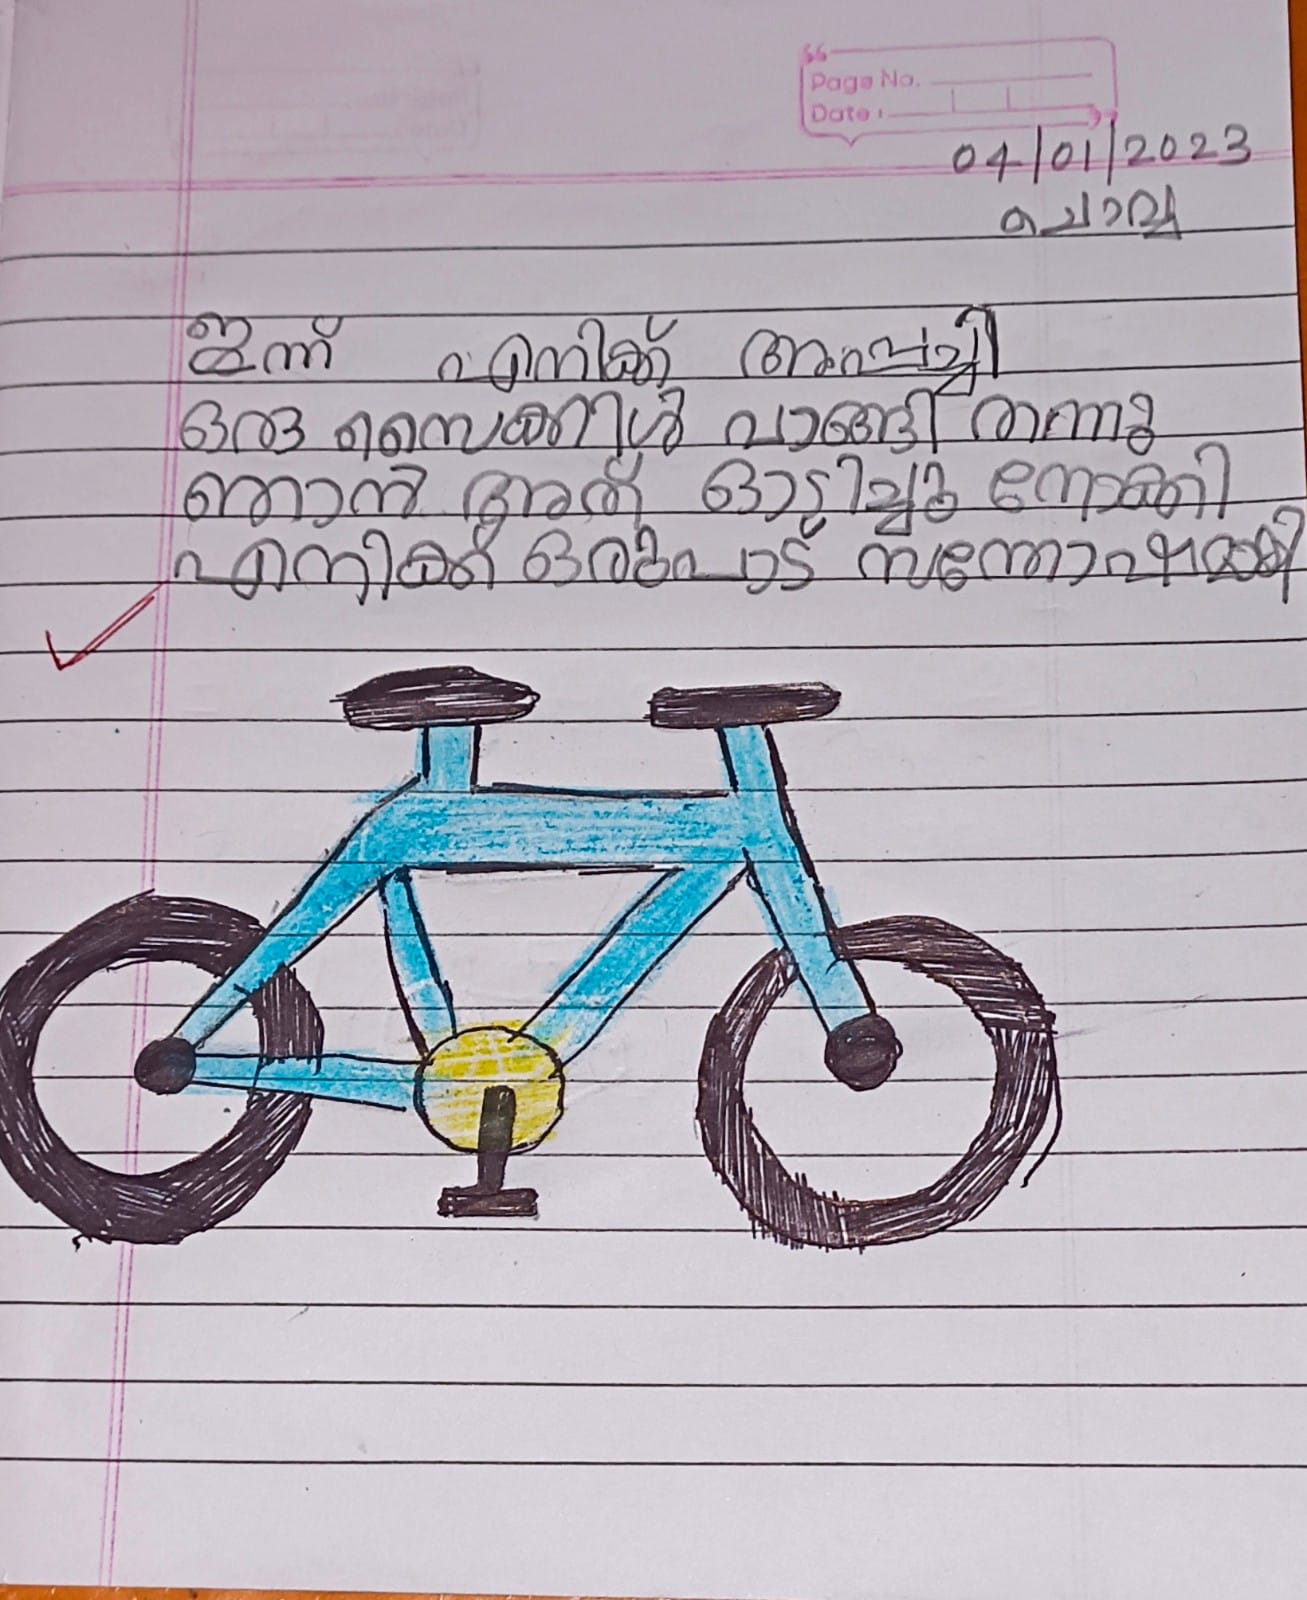 Page No.
Date :
04/01/2023
ചൊവ്വ
ഇന്ന് എനിക്ക് അപ്പച്ചി
ഒരു സൈക്കിൾ വാങ്ങി തന്നു
ഞാൻ അത് ഓടിച്ചു നോക്കി
എനിക്ക് ഒരുപാട് സന്തോഷമായി